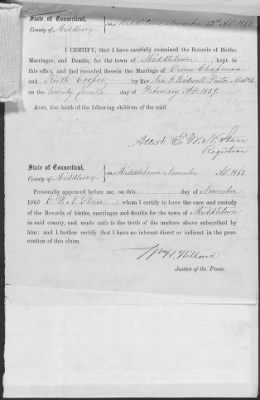 State of Connecticut,
County of Middlesex } ss. Middletown November
I CERTIFY, that I have carefully examined the Records of Births,
Marriages, and Deaths, for the town of Middletown kept in
this office, and find recorded therein the Marriage of Owen Chapman
and Ruth Cooper by Rev.
on the twenty fourth day of February A.D. 1839.
ALSO, the birth of the following children of the said
Attest E. W. N. Starr
Registrar
State of Connecticut,
County of Middlesex } ss. Middletown November A.D. 1863
Personally appeared before me, on this day of November
1863 E. W. N. Starr whom I certify to have the care and custody
of the Records of births, marriages and deaths for the town of Middletown
in said county, and made oath to the truth of the matters above subscribed by
him: and I further certify that I have no interest direct or indirect in the pros-
ecution of this claim.
Justice of the Peace.